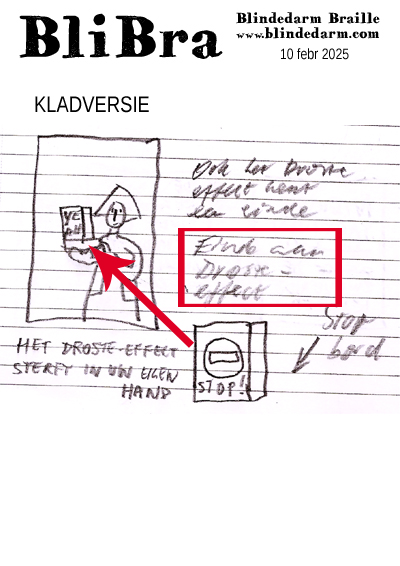 BliBra
Blindedarm Braille
www.blindedarm.com
10 febr 2025
KLADVERSIE
Ook het Droste
effect kent
een einde
Eind aan
Droste-
effect
VE
Stop
bord
STOP!
HET DROSTE-EFFECT
STERFT IN UW EIGEN
HAND